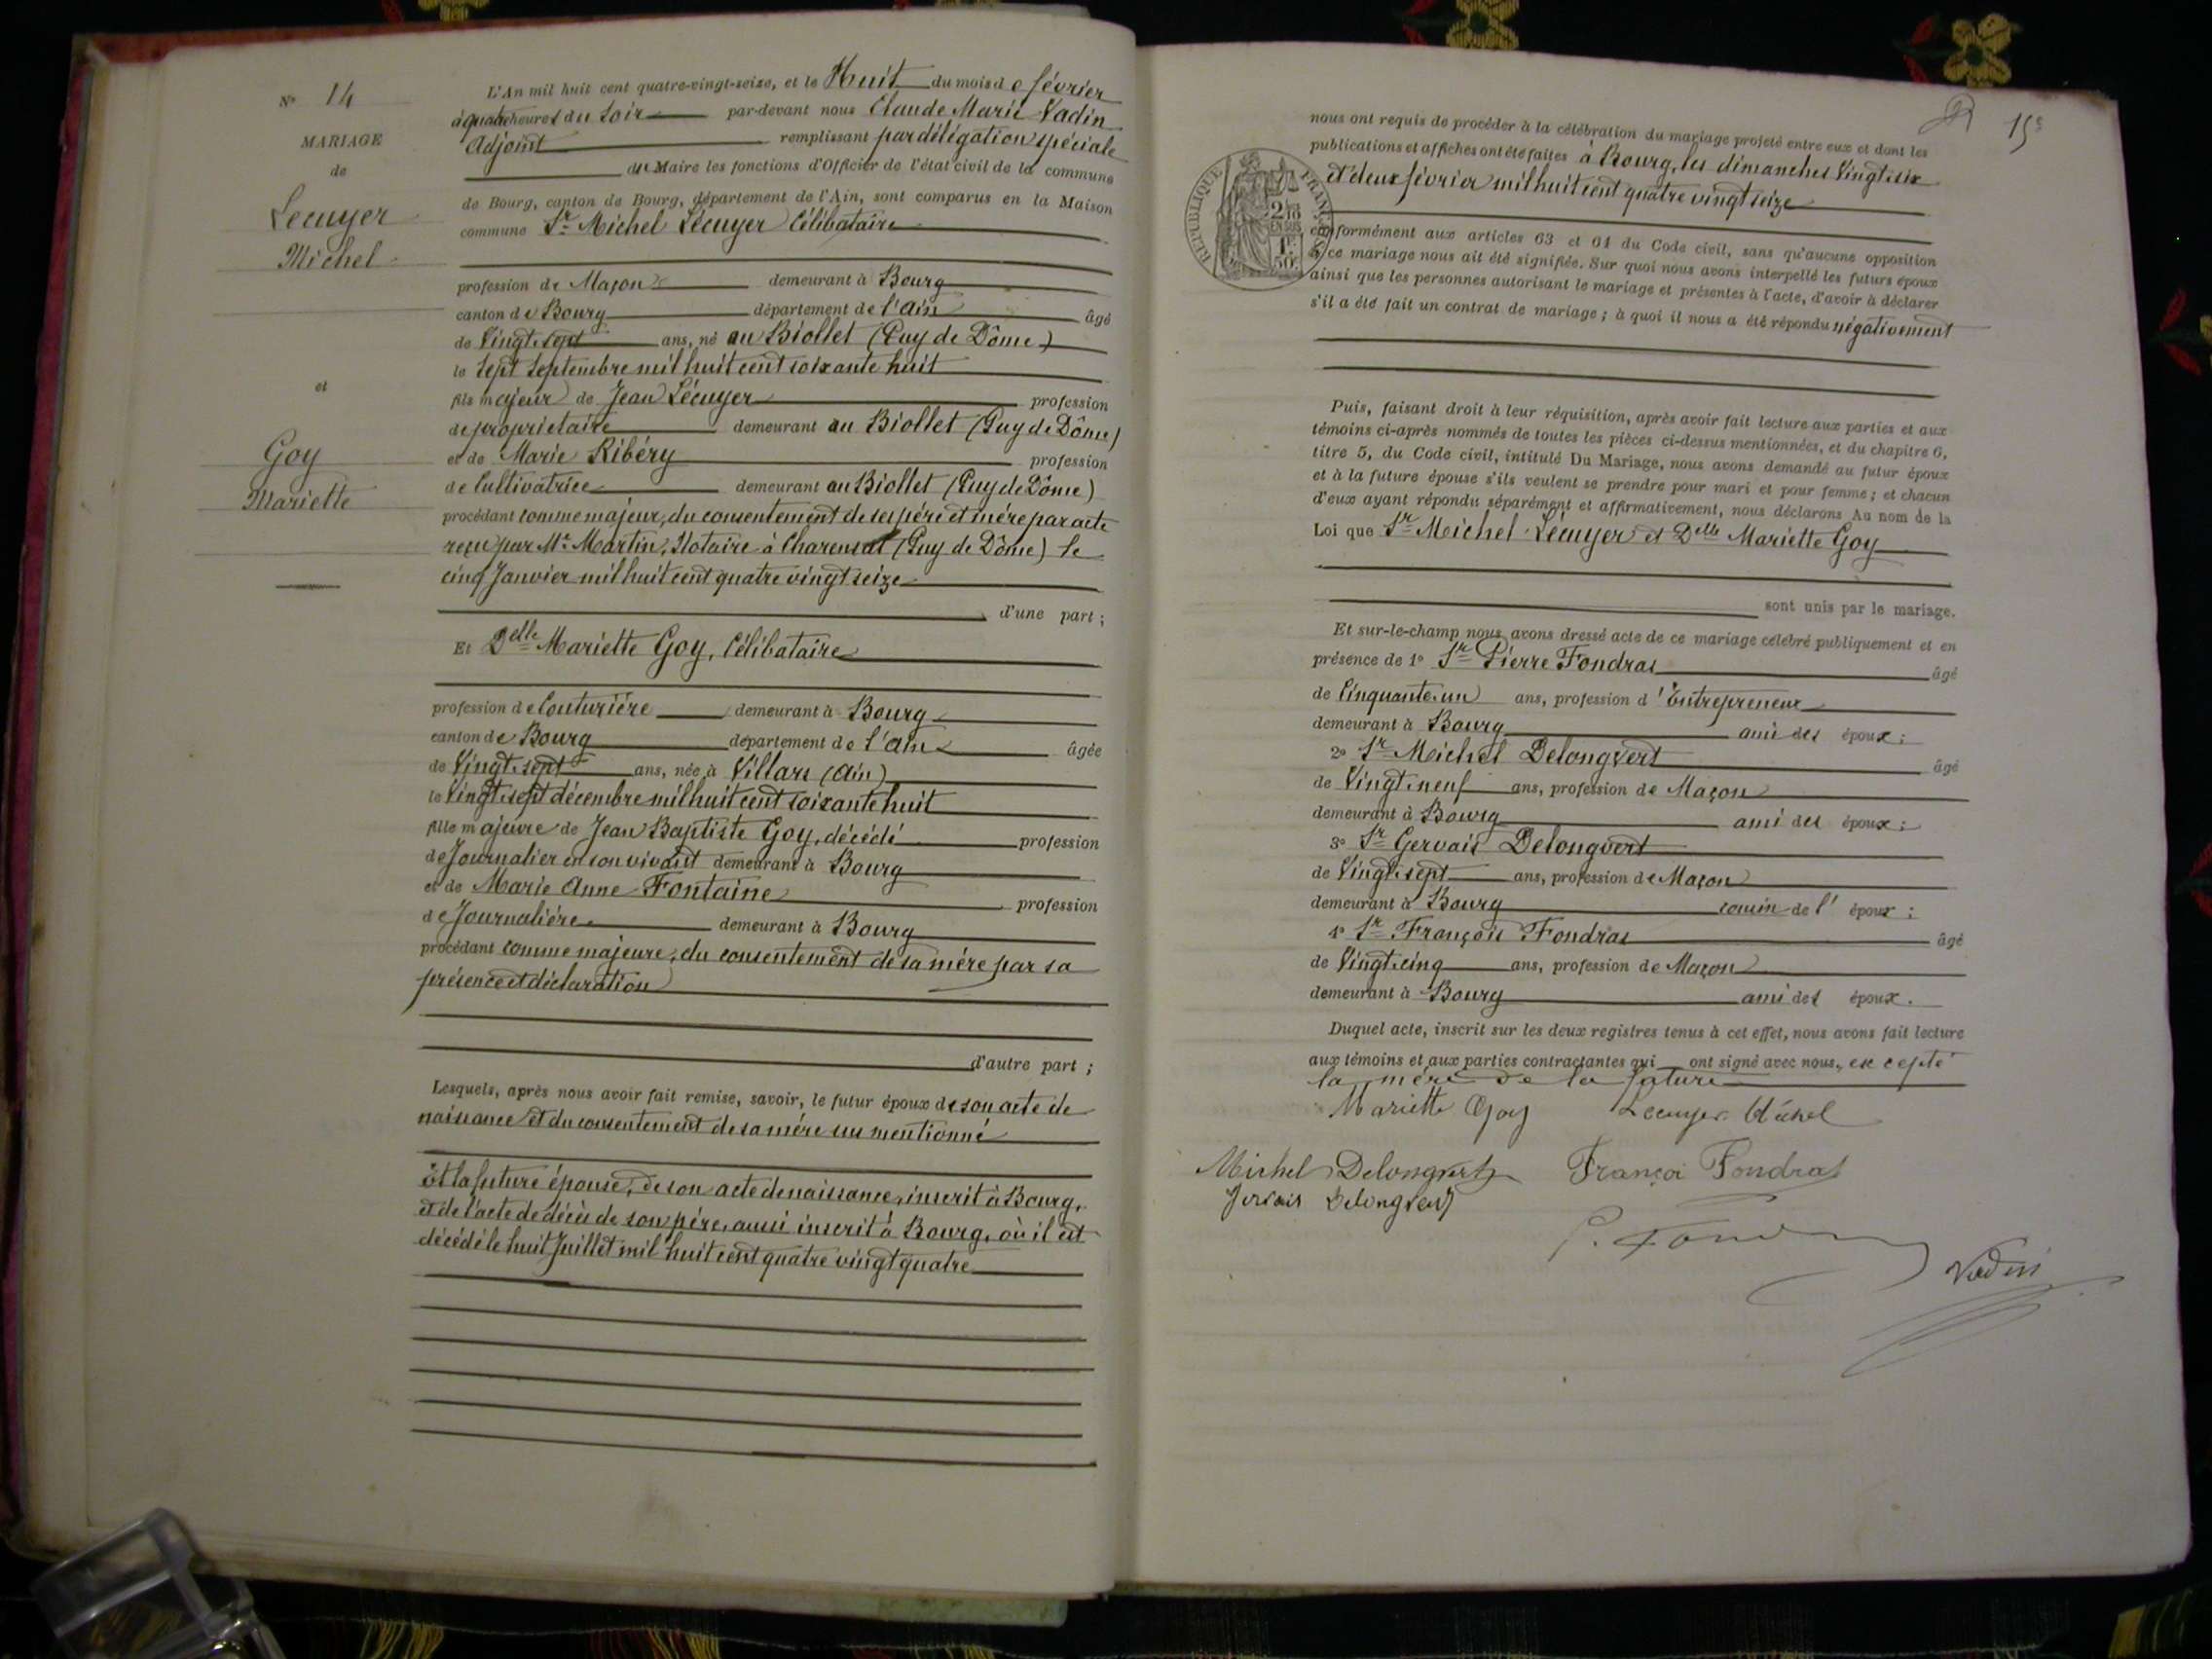 N° 14
MARIAGE
de
Lecuyer
Michel
et
Goy
Mariette
L'An mil huit cent quatre-vingt-seize, et le Huit du mois de février
à quatre heures du soir par-devant nous Claude Marie Vadin
Adjoint remplissant par délégation spéciale
du Maire les fonctions d'Officier de l'état civil de la commune
de Bourg, canton de Bourg, département de l'Ain, sont comparus en la Maison
commune Sr Michel Lécuyer Célibataire
profession de Maçon demeurant à Bourg
canton de Bourg département de l'Ain âgé
de Vingt-sept ans, né au Biollet (Puy de Dôme)
le sept septembre mil huit cent soixante huit
fils majeur de Jean Lécuyer profession
de propriétaire demeurant au Biollet (Puy de Dôme)
et de Marie Ribéry profession
de Cultivatrice demeurant au Biollet (Puy de Dôme)
procédant comme majeur, du consentement de ses père et mère par acte
reçu par Me Martin, Notaire à Charensat (Puy de Dôme) le
cinq Janvier mil huit cent quatre vingt seize
d'une part ;
Et Delle Mariette Goy, Célibataire
profession de Couturière demeurant à Bourg
canton de Bourg département de l'Ain âgée
de Vingt-sept ans, née à Villars (Ain)
le Vingt-sept décembre mil huit cent soixante huit
fille majeure de Jean Baptiste Goy, décédé profession
de Journalier en son vivant demeurant à Bourg
et de Marie Anne Fontaine profession
de Journalière demeurant à Bourg
procédant comme majeure, du consentement de sa mère par sa
présence et déclaration
d'autre part ;
Lesquels, après nous avoir fait remise, savoir, le futur époux de son acte de
naissance et du consentement de sa mère sus mentionné
Et la future épouse, de son acte de naissance, inscrit à Bourg,
et de l'acte de décès de son père, aussi inscrit à Bourg, où il est
décédé le huit Juillet mil huit cent quatre vingt quatre
15e
nous ont requis de procéder à la célébration du mariage projeté entre eux et dont les
publications et affiches ont été faites à Bourg, les dimanches Vingt-six
et deux février mil huit cent quatre vingt seize
RÉPUBLIQUE FRANÇAISE
2/10
EN SUS
1F
50c
conformément aux articles 63 et 64 du Code civil, sans qu'aucune opposition
à ce mariage nous ait été signifiée. Sur quoi nous avons interpellé les futurs époux
ainsi que les personnes autorisant le mariage et présentes à l'acte, d'avoir à déclarer
s'il a été fait un contrat de mariage ; à quoi il nous a été répondu négativement
Puis, faisant droit à leur réquisition, après avoir fait lecture aux parties et aux
témoins ci-après nommés de toutes les pièces ci-dessus mentionnées, et du chapitre 6,
titre 5, du Code civil, intitulé Du Mariage, nous avons demandé au futur époux
et à la future épouse s'ils veulent se prendre pour mari et pour femme ; et chacun
d'eux ayant répondu séparément et affirmativement, nous déclarons Au nom de la
Loi que Sr Michel Lécuyer et Delle Mariette Goy
sont unis par le mariage.
Et sur-le-champ nous avons dressé acte de ce mariage célébré publiquement et en
présence de 1° Sr Pierre Fondras âgé
de Cinquante-un ans, profession d'Entrepreneur
demeurant à Bourg ami des époux ;
2° Sr Michel Delongvert âgé
de Vingt-neuf ans, profession de Maçon
demeurant à Bourg ami des époux ;
3° Sr Gervais Delongvert
de Vingt-sept ans, profession de Maçon
demeurant à Bourg cousin de l'époux ;
4° Sr François Fondras âgé
de Vingt-cinq ans, profession de Maçon
demeurant à Bourg ami des époux.
Duquel acte, inscrit sur les deux registres tenus à cet effet, nous avons fait lecture
aux témoins et aux parties contractantes qui ont signé avec nous, excepté
la mère de la future
Mariette Goy Lecuyer Michel
Michel Delongvert Françoi Fondras
Gervais Delongvert
P. Fondras
Vadin